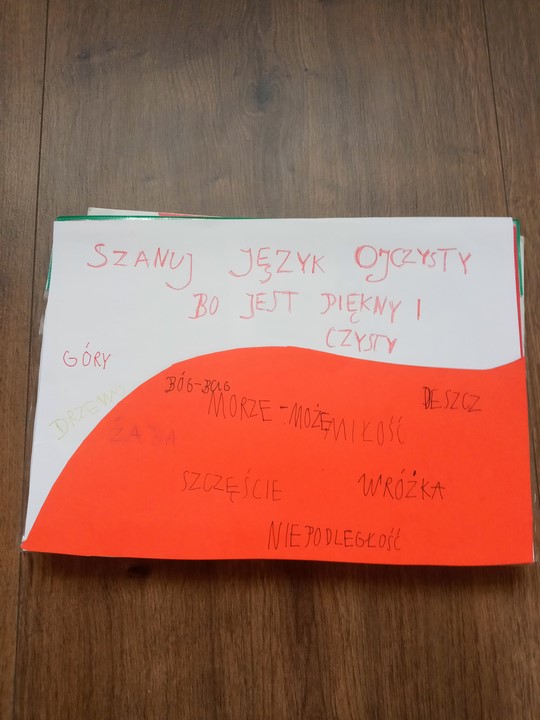 SZANUJ JĘZYK OJCZYSTY
BO JEST PIĘKNY I
CZYSTY
GÓRY
DRZEWO
BÓG-BUG
MORZE-MOŻE
MIŁOŚĆ
DESZCZ
ŻABA
SZCZĘŚCIE
WRÓŻKA
NIEPODLEGŁOŚĆ